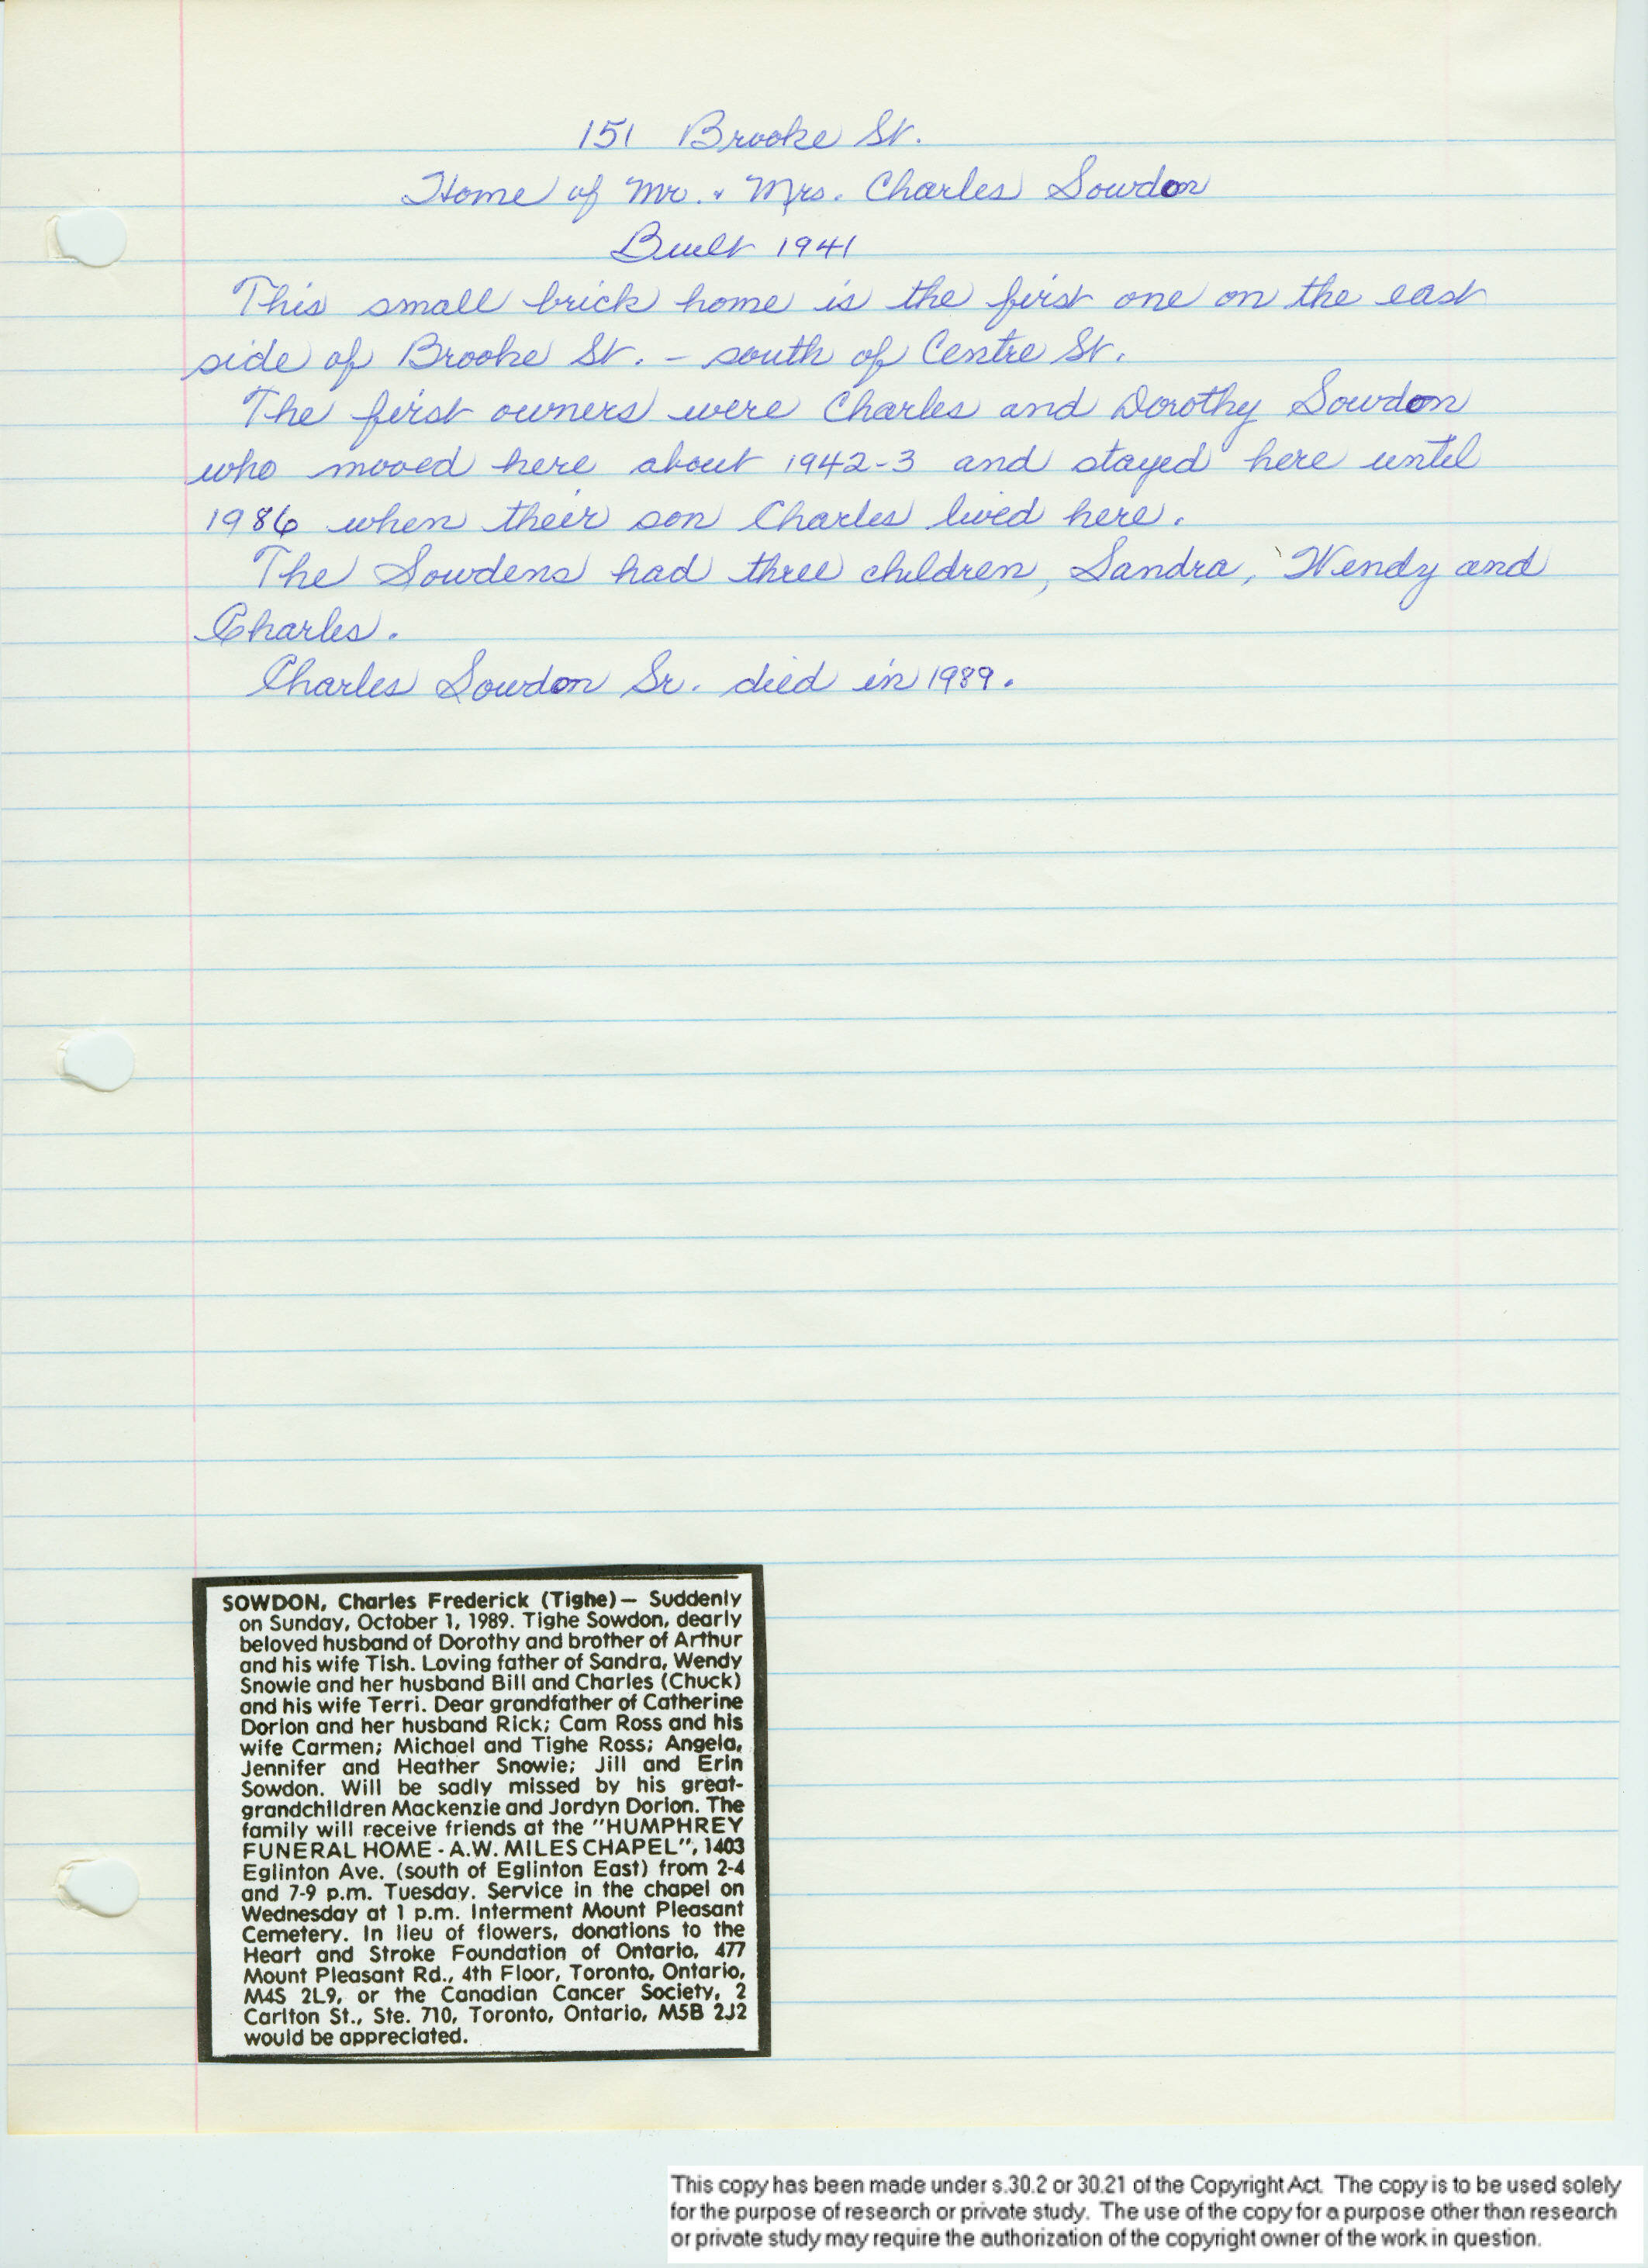 151 Brooke St.
Home of Mr. & Mrs. Charles Sowdon
Built 1941
This small brick home is the first one on the east
side of Brooke St. - south of Centre St.
The first owners were Charles and Dorothy Sowdon
who moved here about 1942-3 and stayed here until
1986 when their son Charles lived here.
The Sowdens had three children, Sandra, Wendy and
Charles.
Charles Sowdon Sr. died in 1989.
SOWDON, Charles Frederick (Tighe) — Suddenly
on Sunday, October 1, 1989. Tighe Sowdon, dearly
beloved husband of Dorothy and brother of Arthur
and his wife Tish. Loving father of Sandra, Wendy
Snowie and her husband Bill and Charles (Chuck)
and his wife Terri. Dear grandfather of Catherine
Dorion and her husband Rick; Cam Ross and his
wife Carmen; Michael and Tighe Ross; Angela,
Jennifer and Heather Snowie; Jill and Erin
Sowdon. Will be sadly missed by his great-
grandchildren Mackenzie and Jordyn Dorion. The
family will receive friends at the "HUMPHREY
FUNERAL HOME - A.W. MILES CHAPEL", 1403
Eglinton Ave. (south of Eglinton East) from 2-4
and 7-9 p.m. Tuesday. Service in the chapel on
Wednesday at 1 p.m. Interment Mount Pleasant
Cemetery. In lieu of flowers, donations to the
Heart and Stroke Foundation of Ontario, 477
Mount Pleasant Rd., 4th Floor, Toronto, Ontario,
M4S 2L9, or the Canadian Cancer Society, 2
Carlton St., Ste. 710, Toronto, Ontario, M5B 2J2
would be appreciated.
This copy has been made under s.30.2 or 30.21 of the Copyright Act. The copy is to be used solely
for the purpose of research or private study. The use of the copy for a purpose other than research
or private study may require the authorization of the copyright owner of the work in question.